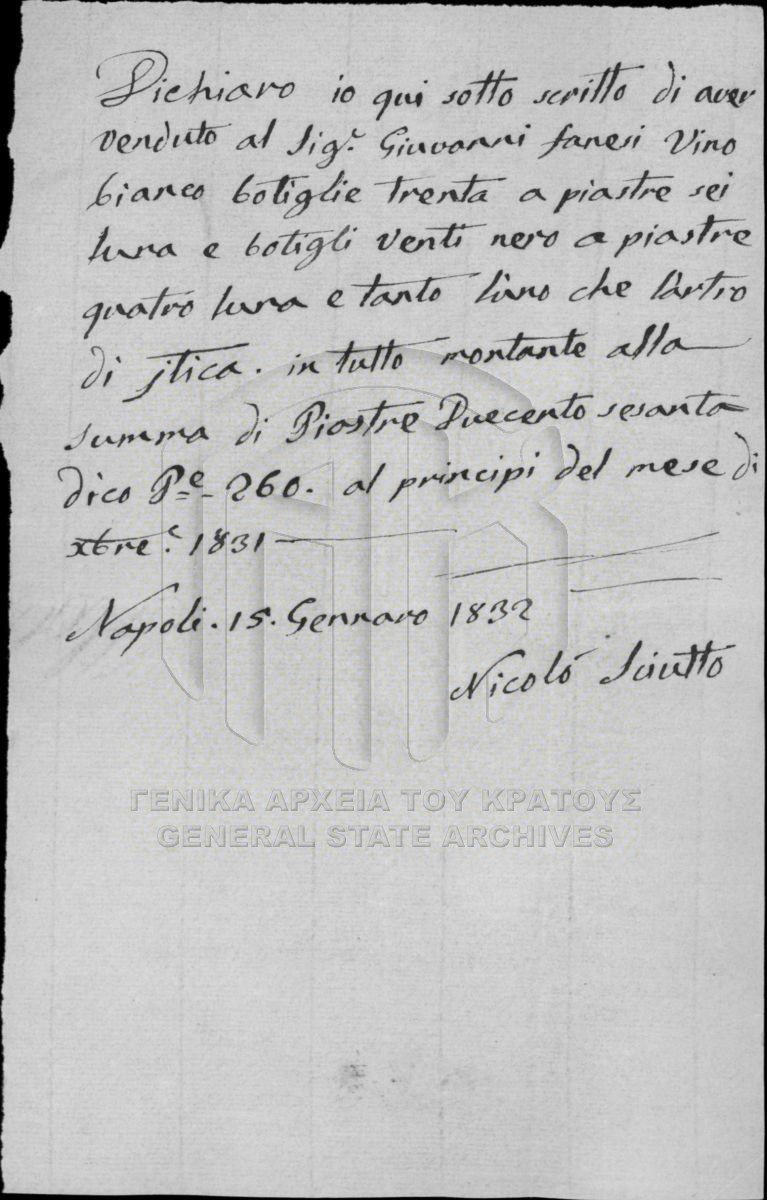 Dichiaro io qui sotto scritto di aver
venduto al Sig.r Giuvanni fanesi Vino
bianco botiglie trenta a piastre sei
luna e botigli venti nero a piastre
quatro luna e tanto lùno che làrtro
di jtica. in tutto montante alla
summa di Piastre Duecento sesanta
dico P.e 260. al principi del mese di
xbre. 1831
Napoli. 15. Gennaro 1832
Nicoló Sciutto
ΓΕΝΙΚΑ ΑΡΧΕΙΑ ΤΟΥ ΚΡΑΤΟΥΣ
GENERAL STATE ARCHIVES